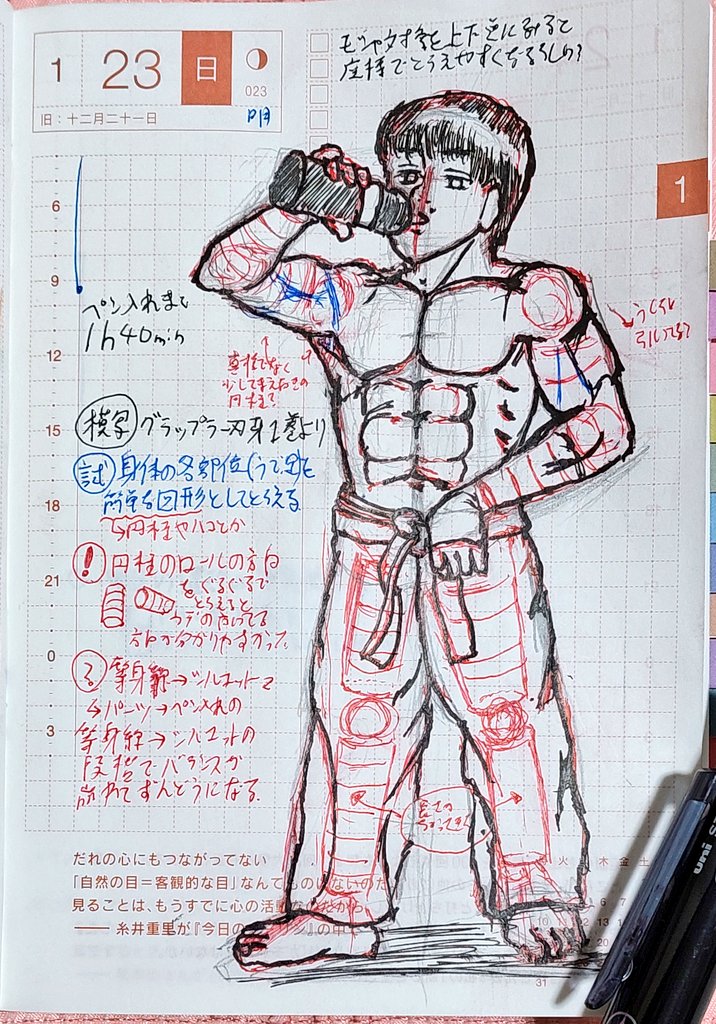 1 23 日
023
旧：十二月二十一日
明
1
6
9
12
15
18
21
0
3
模写対象を上下逆にみると
座標でとらえやすくなるらしい?
ペン入れまで
1h40min
真横でなく
少し手まえむきの
円柱?
うしろに
引いてる?
模写 グラップラー刃牙1巻より
試 身体の各部位(うで足)を
簡単な図形としてとらえる
→円柱やハコとか
! 円柱のロールの方向
をぐるぐるで
とらえると
ウデの向いてる
方向が分かりやすかった。
等身線→シルエット→
→パーツ→ペン入れの
等身線→シルエットの
段階でバランスが
崩れてずんどうになる。
だれの心にもつながってない
「自然の目＝客観的な目」なんてものはないのだ
見ることは、もうすでに心の活動なのだから。
―― 糸井重里が『今日のダーリン』の中で
火 木 金 土
6 7
13
20
31
uni